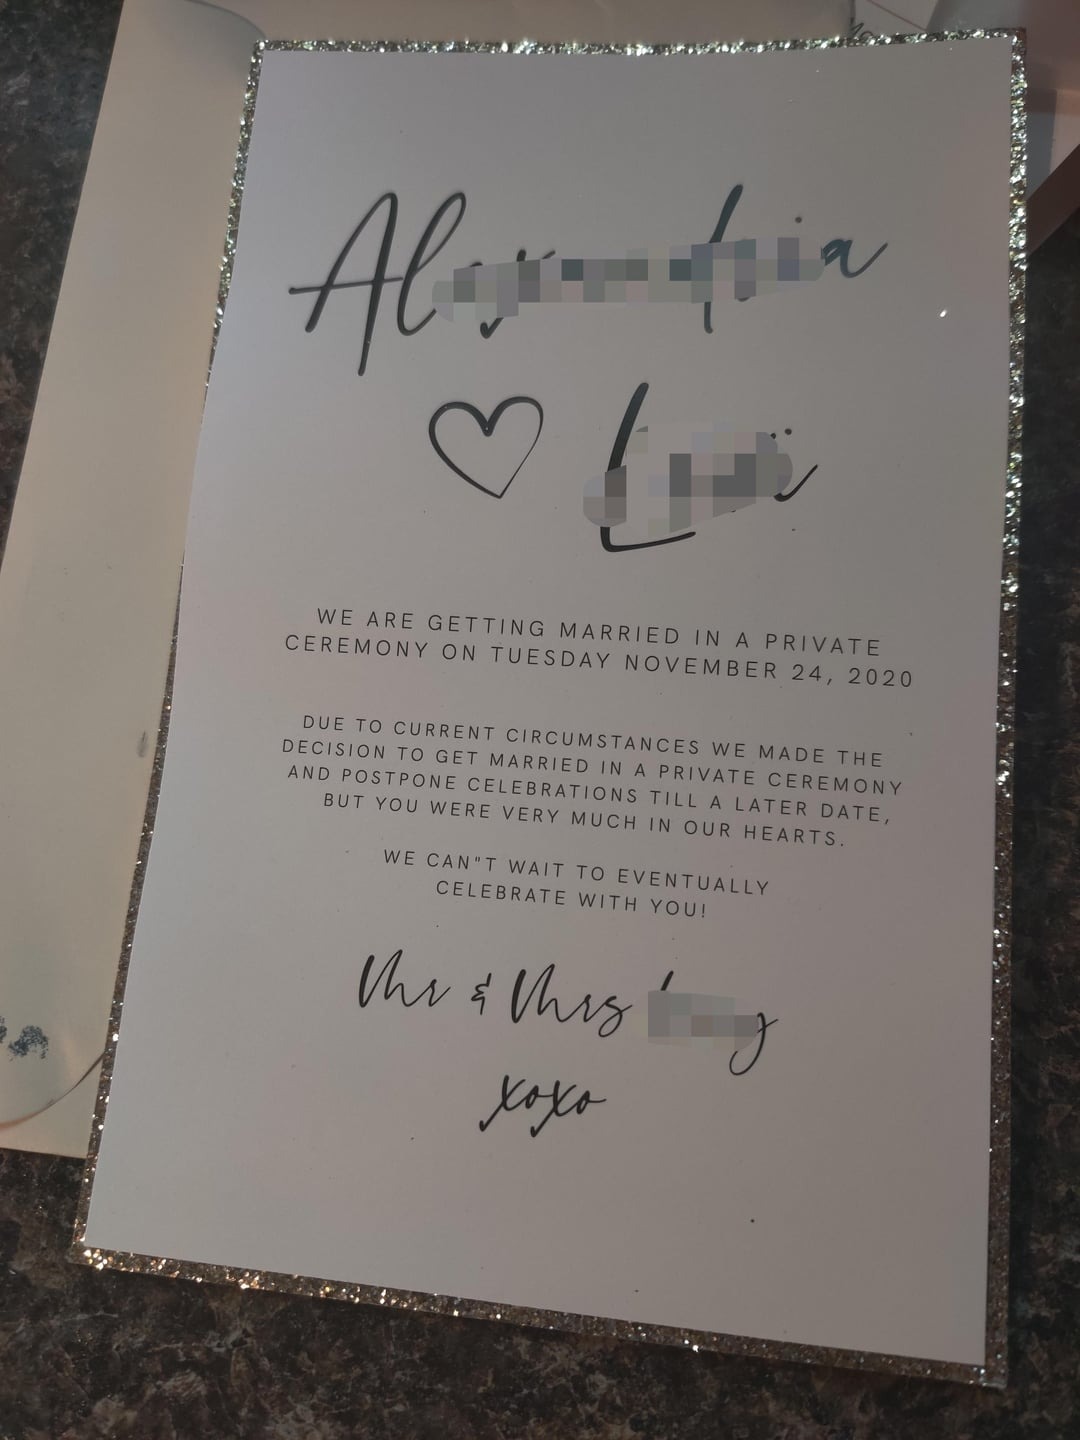 WE ARE GETTING MARRIED IN A PRIVATE
CEREMONY ON TUESDAY NOVEMBER 24, 2020
DUE TO CURRENT CIRCUMSTANCES WE MADE THE
DECISION TO GET MARRIED IN A PRIVATE CEREMONY
AND POSTPONE CELEBRATIONS TILL A LATER DATE,
BUT YOU WERE VERY MUCH IN OUR HEARTS.
WE CAN"T WAIT TO EVENTUALLY
CELEBRATE WITH YOU!
Mr & Mrs
xoxo